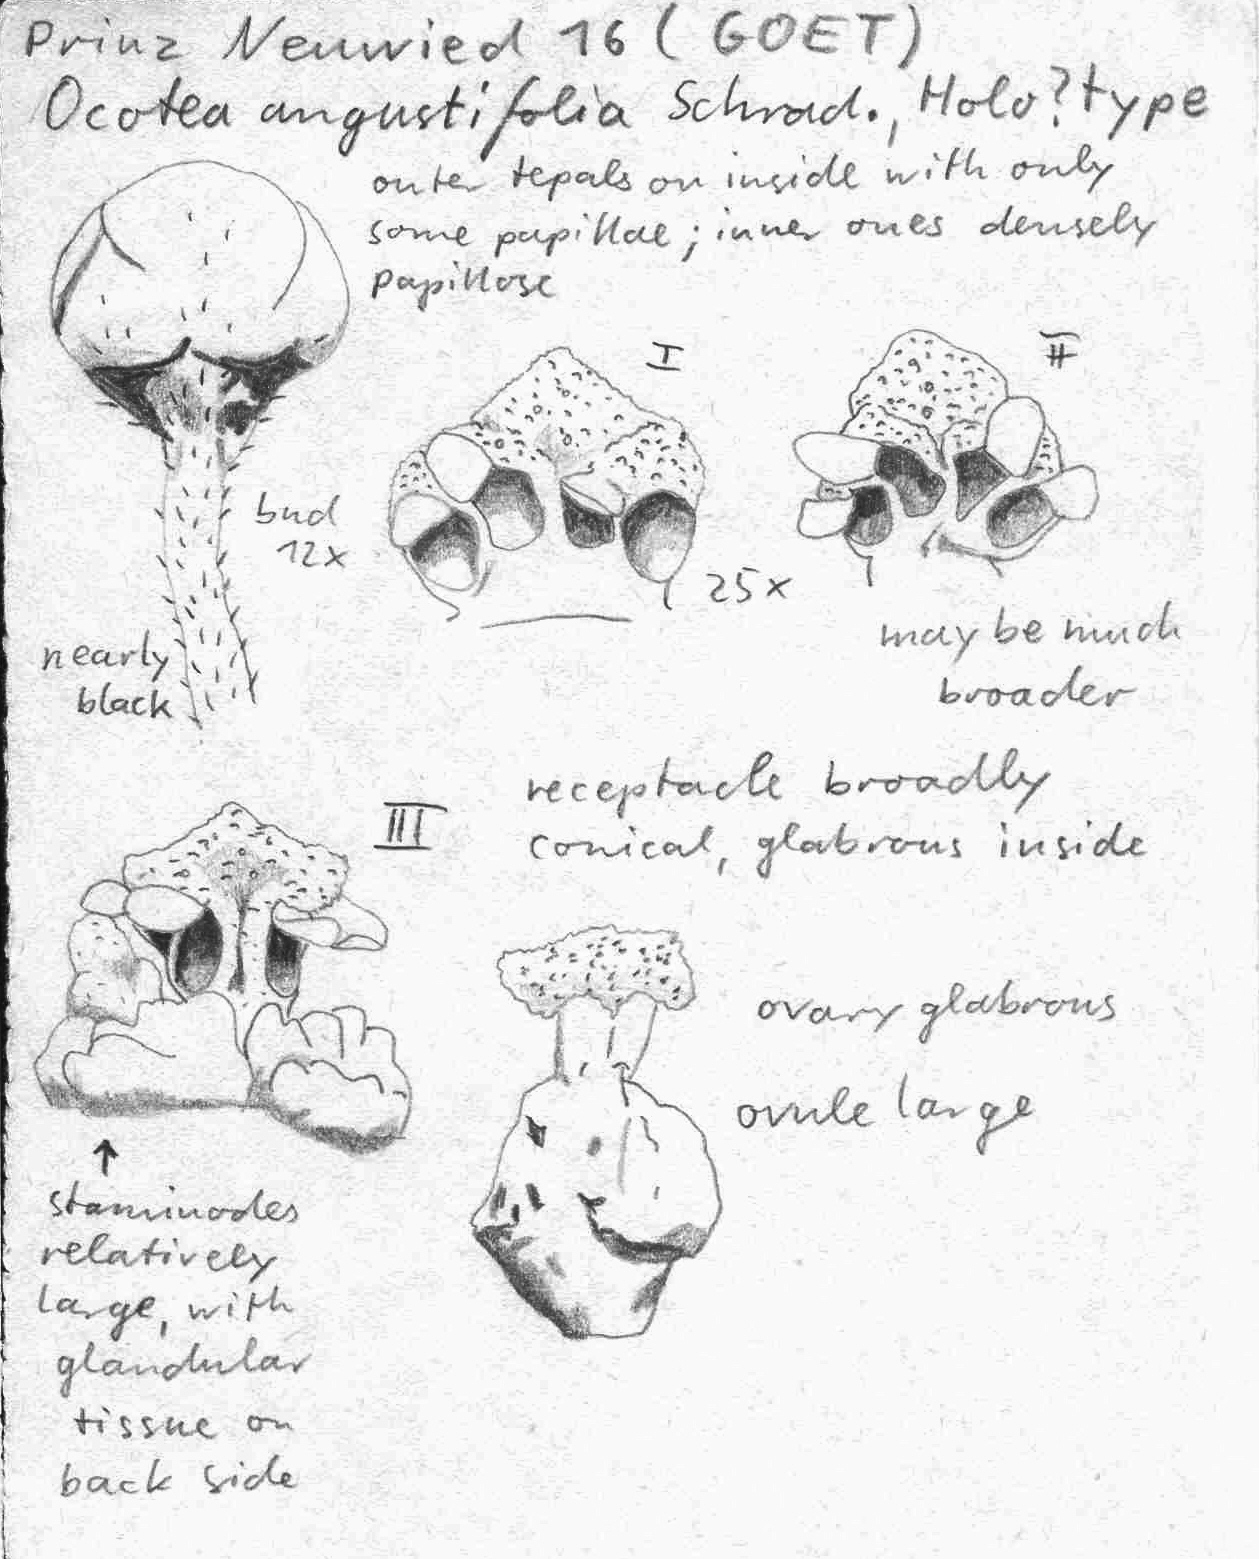 Prinz Neuwied 16 (GOET)
Ocotea angustifolia Schrad., Holo?type
outer tepals on inside with only
some papillae; inner ones densely
papillose
I
II
bud
12x
25x
nearly
black
may be much
broader
III
receptacle broadly
conical, glabrous inside
ovary glabrous
ovule large
↑
staminodes
relatively
large, with
glandular
tissue on
back side